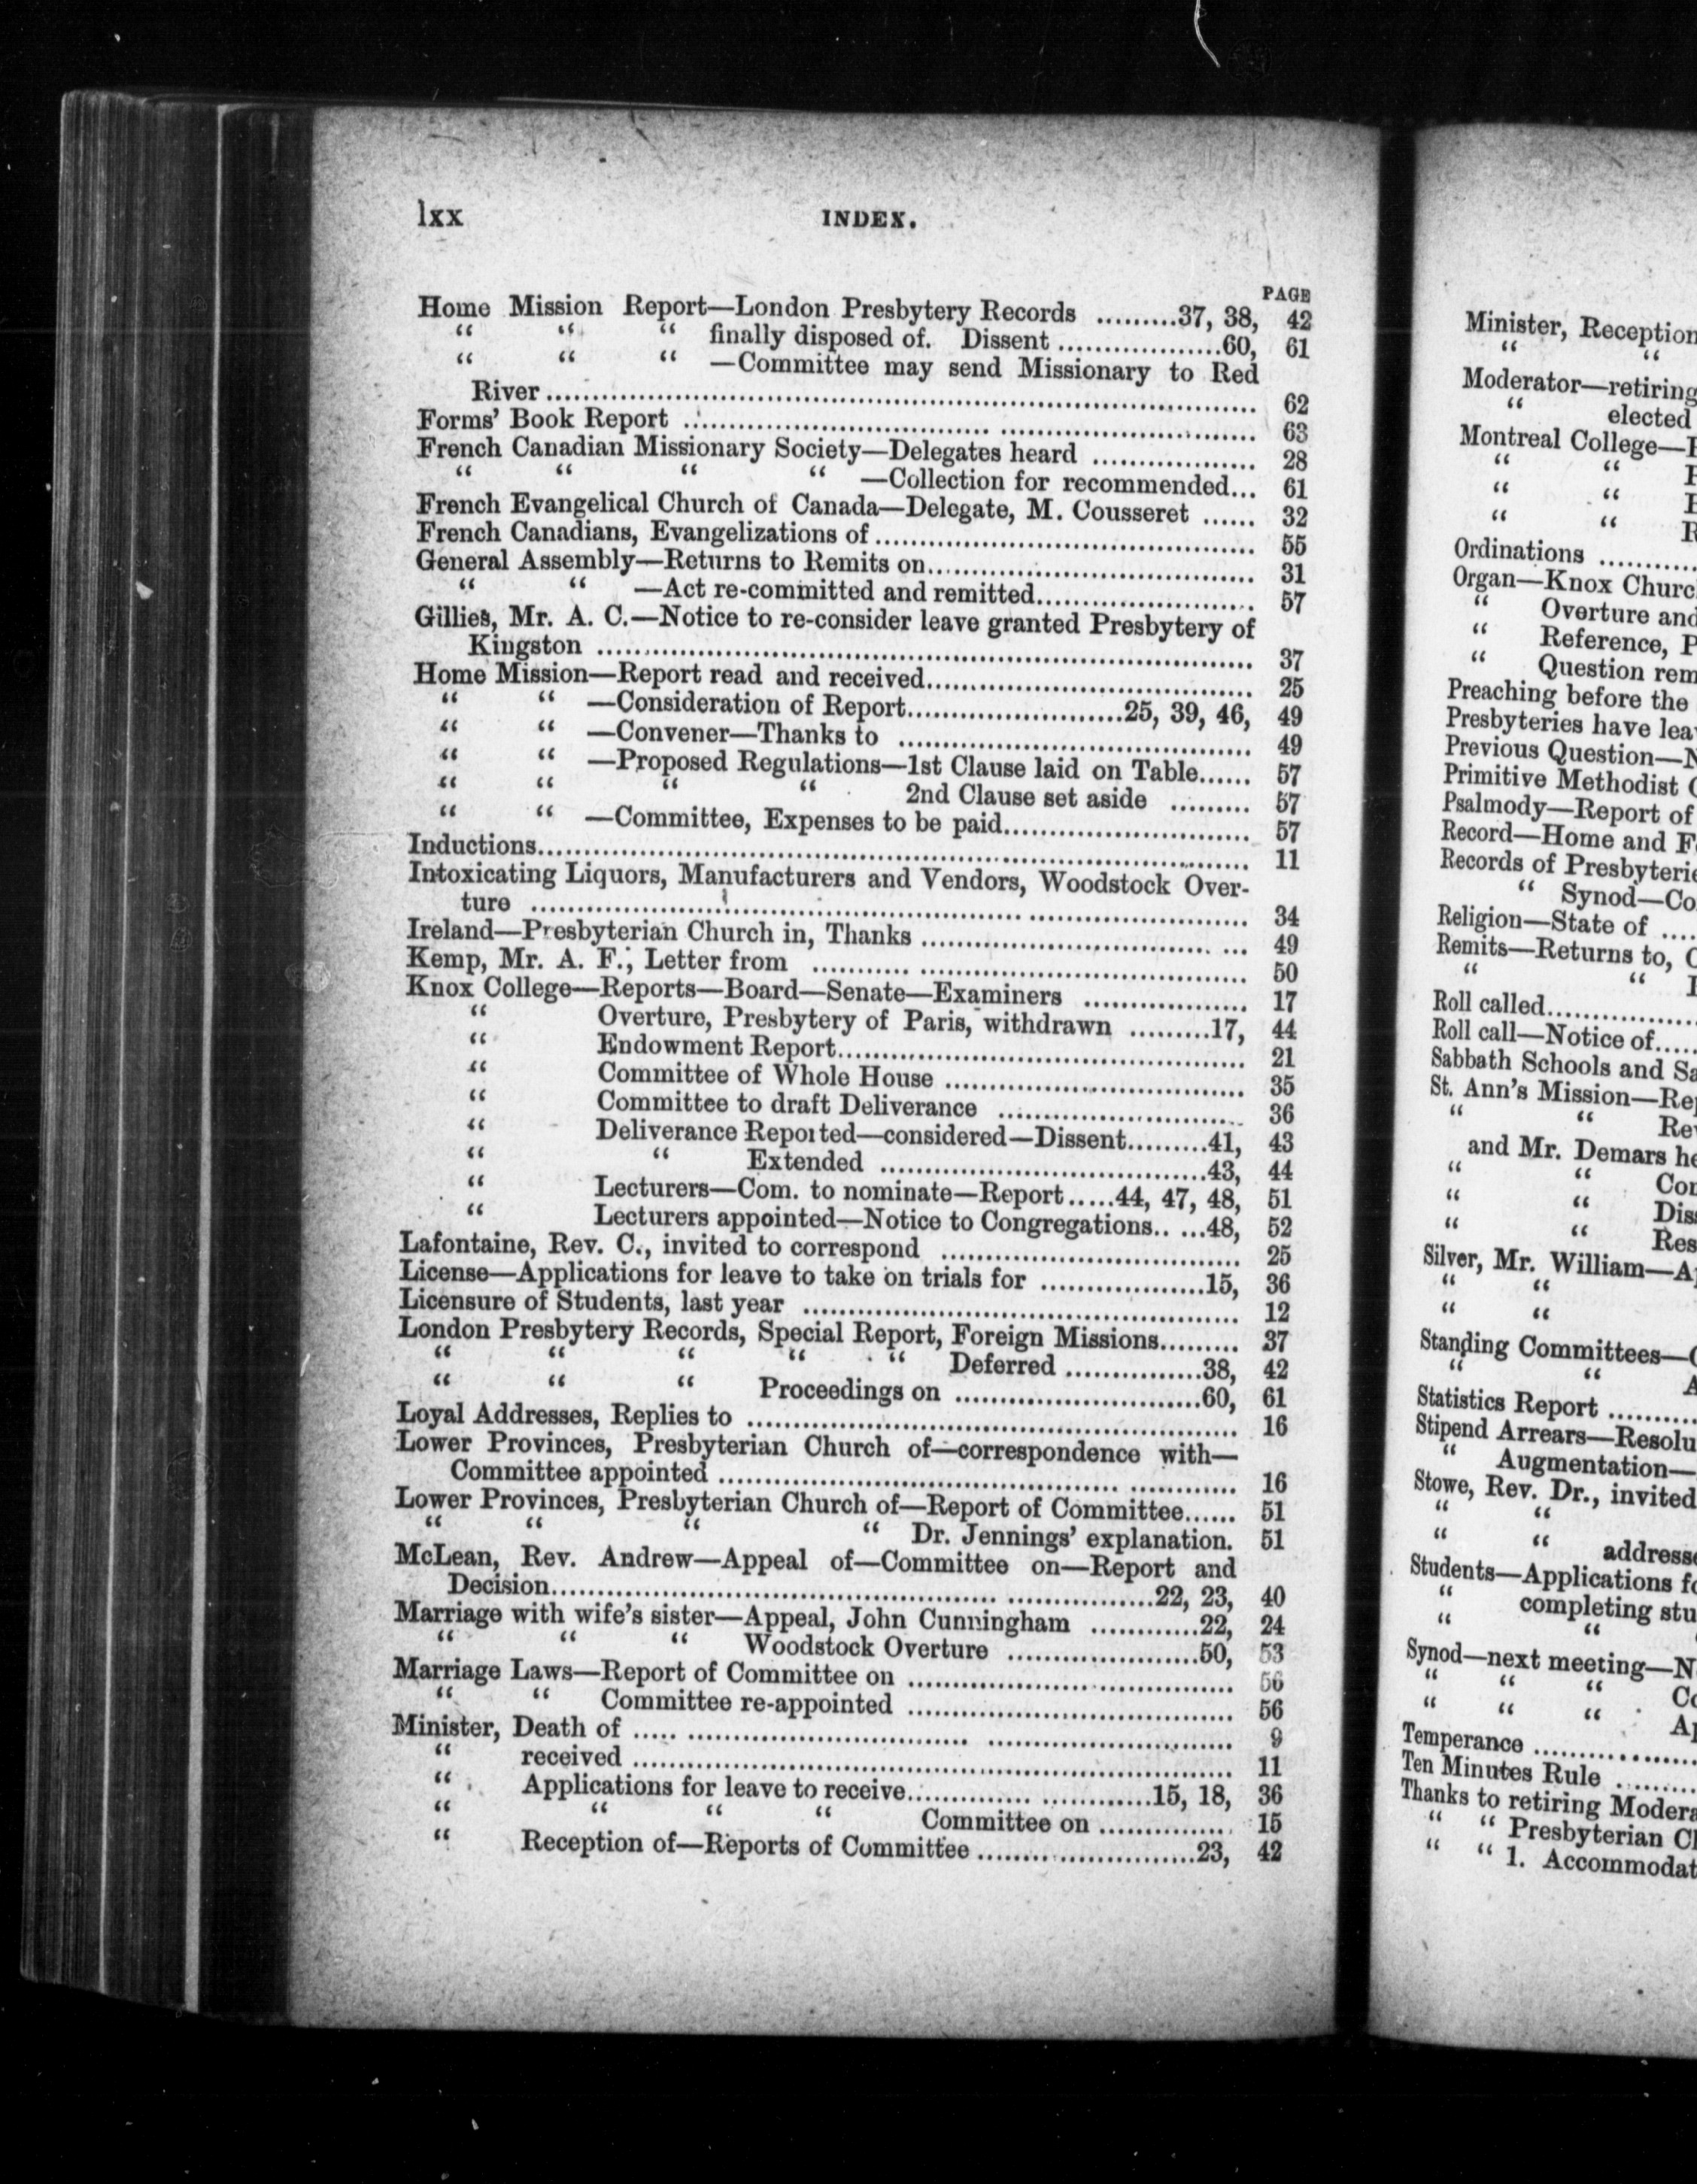 lxx
INDEX.
PAGE
Home Mission Report—London Presbytery Records .........37, 38, 42
“ “ “ finally disposed of. Dissent ..................60, 61
“ “ “ —Committee may send Missionary to Red
River.......................................................................... 62
Forms' Book Report ................................. ............................ 63
French Canadian Missionary Society—Delegates heard .................. 28
“ “ “ “ —Collection for recommended... 61
French Evangelical Church of Canada—Delegate, M. Cousseret ...... 32
French Canadians, Evangelizations of......................................... 55
General Assembly—Returns to Remits on.................................... 31
“ “ —Act re-committed and remitted........................ 57
Gillies, Mr. A. C.—Notice to re-consider leave granted Presbytery of
Kingston ....................................................................... 37
Home Mission—Report read and received.................................... 25
“ “ —Consideration of Report........................25, 39, 46, 49
“ “ —Convener—Thanks to ...................................... 49
“ “ —Proposed Regulations—1st Clause laid on Table...... 57
“ “ “ “ 2nd Clause set aside ......... 57
“ “ —Committee, Expenses to be paid........................... 57
Inductions............................................................................. 11
Intoxicating Liquors, Manufacturers and Vendors, Woodstock Over-
ture ..................................................... ........................ 34
Ireland—Presbyterian Church in, Thanks ................................ ... 49
Kemp, Mr. A. F., Letter from ........... .................................... 50
Knox College—Reports—Board—Senate—Examiners .................. 17
“ Overture, Presbytery of Paris, withdrawn .........17, 44
“ Endowment Report............................................. 21
“ Committee of Whole House ................................. 35
“ Committee to draft Deliverance ........................... 36
“ Deliverance Reported—considered—Dissent.........41, 43
“ “ Extended ....................................43, 44
“ Lecturers—Com. to nominate—Report.....44, 47, 48, 51
“ Lecturers appointed—Notice to Congregations.. ...48, 52
Lafontaine, Rev. C., invited to correspond ................................. 25
License—Applications for leave to take on trials for ..................15, 36
Licensure of Students, last year ................................................ 12
London Presbytery Records, Special Report, Foreign Missions......... 37
“ “ “ “ “ Deferred ...............38, 42
“ “ “ Proceedings on ...........................60, 61
Loyal Addresses, Replies to ...................................................... 16
Lower Provinces, Presbyterian Church of—correspondence with—
Committee appointed ............................................ ............ 16
Lower Provinces, Presbyterian Church of—Report of Committee...... 51
“ “ “ “ Dr. Jennings' explanation. 51
McLean, Rev. Andrew—Appeal of—Committee on—Report and
Decision................................................ ................22, 23, 40
Marriage with wife's sister—Appeal, John Cunningham ............22, 24
“ “ “ Woodstock Overture .....................50, 53
Marriage Laws—Report of Committee on .................................... 56
“ “ Committee re-appointed .................................... 56
Minister, Death of ..... ............................... ........................ 9
“ received .................................................................. 11
“ Applications for leave to receive.............. ............15, 18, 36
“ “ “ “ Committee on ............... 15
“ Reception of—Reports of Committee ........................23, 42
Minister, Reception
“ “
Moderator—retiring
“ elected
Montreal College—
“ “
“ “
“ “
Ordinations ...........
Organ—Knox Churc
“ Overture and
“ Reference, P
“ Question rem
Preaching before the
Presbyteries have lea
Previous Question—N
Primitive Methodist C
Psalmody—Report of
Record—Home and F
Records of Presbyterie
“ Synod—Co
Religion—State of ....
Remits—Returns to,
“ “
Roll called................
Roll call—Notice of.....
Sabbath Schools and Sa
St. Ann's Mission—Rep
“ “ Rev
and Mr. Demars he
“ “ Con
“ “ Diss
“ “ Res
Silver, Mr. William—A
“ “
“ “
Standing Committees—
“ “ A
Statistics Report ..........
Stipend Arrears—Resolu
“ Augmentation—
Stowe, Rev. Dr., invited
“ “
“ “ addresse
Students—Applications fo
“ completing stu
“ “
Synod—next meeting—N
“ “ “ Co
“ “ “ Ap
Temperance ..................
Ten Minutes Rule .........
Thanks to retiring Modera
“ “ Presbyterian Ch
“ “ 1. Accommodat